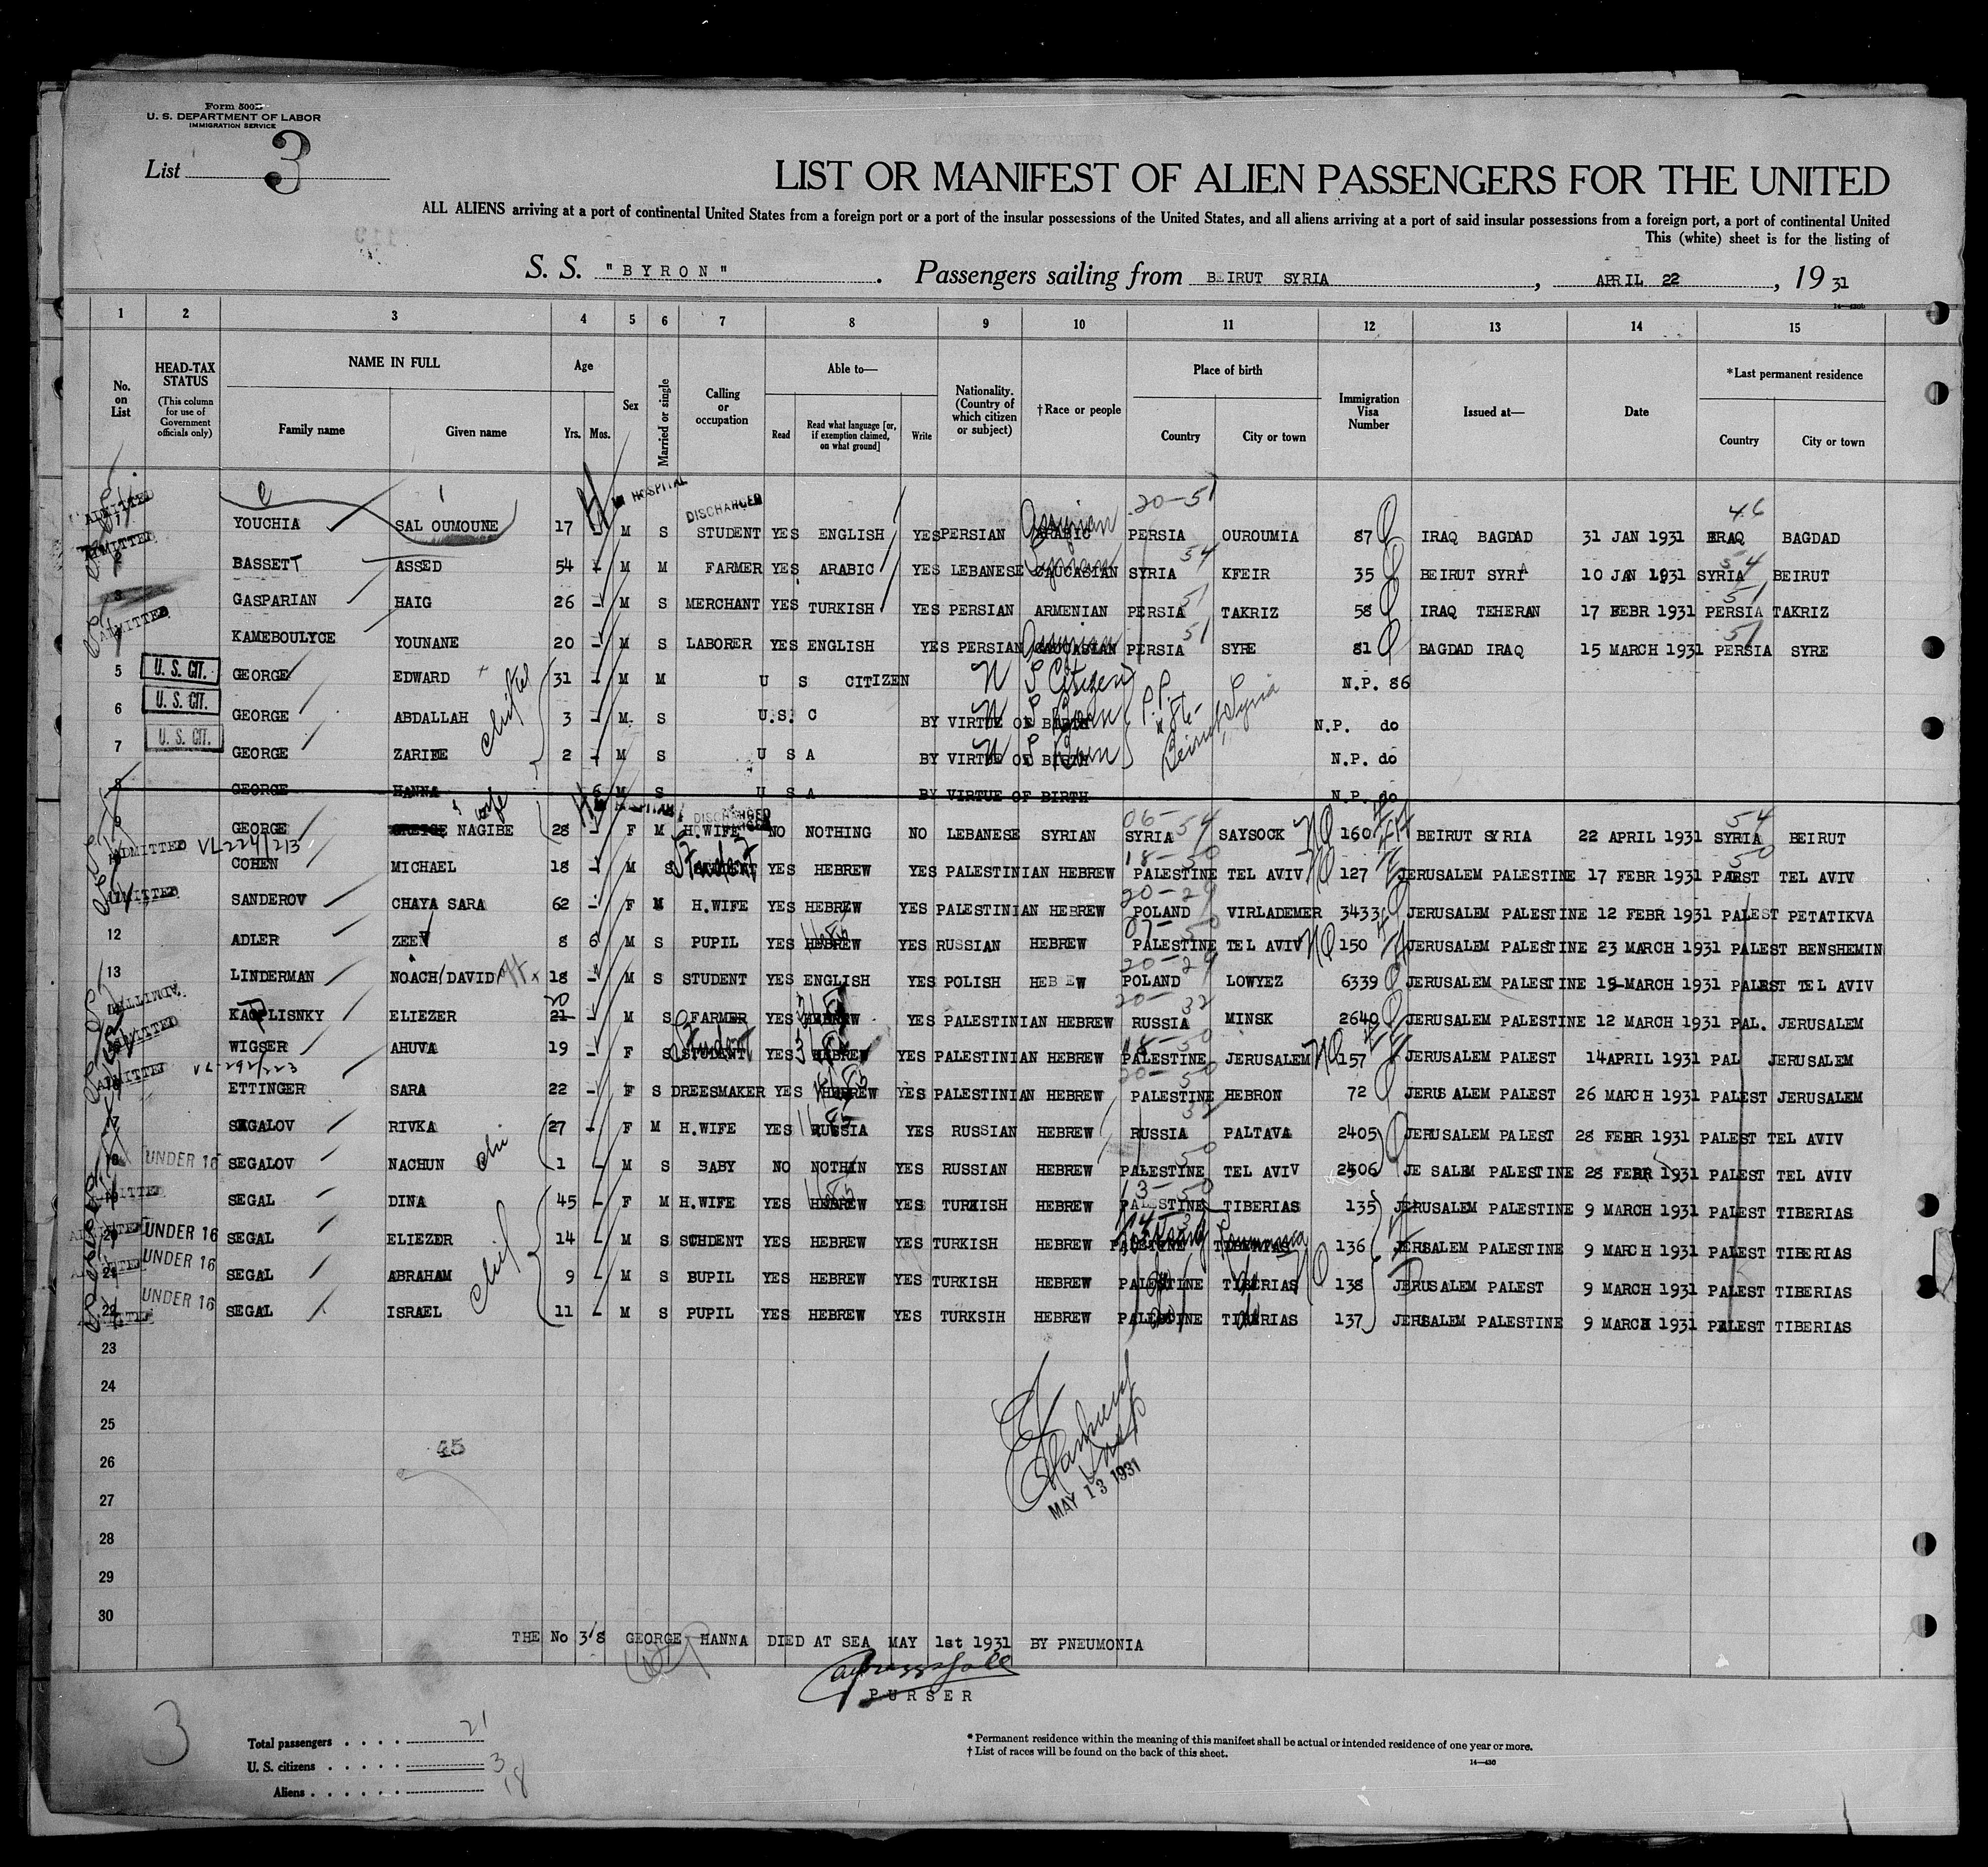 Form 500B
U. S. DEPARTMENT OF LABOR
IMMIGRATION SERVICE
List 3
LIST OR MANIFEST OF ALIEN PASSENGERS FOR THE UNITED
ALL ALIENS arriving at a port of continental United States from a foreign port or a port of the insular possessions of the United States, and all aliens arriving at a port of said insular possessions from a foreign port, a port of continental United
This (white) sheet is for the listing of
S. S. "BYRON". Passengers sailing from BEIRUT SYRIA, APRIL 22, 19 31
1 2 3 4 5 6 7 8 9 10 11 12 13 14 15
No. on List
HEAD-TAX STATUS (This column for use of Government officials only)
NAME IN FULL Family name Given name
Age Yrs. Mos.
Sex
Married or single
Calling or occupation
Able to— Read Read what language [or, if exemption claimed, on what ground] Write
Nationality. (Country of which citizen or subject)
†Race or people
Place of birth Country City or town
Immigration Visa Number
Issued at—
Date
*Last permanent residence Country City or town
IN HOSPITAL DISCHARGED 20-51 46
ADMITTED YOUCHIA SAL OUMOUNE 17 - M S STUDENT YES ENGLISH YES PERSIAN ARABIC Assyrian PERSIA OUROUMIA 87 IRAQ BAGDAD 31 JAN 1931 IRAQ BAGDAD
ADMITTED BASSETT ASSED 54 - M M FARMER YES ARABIC YES LEBANESE CAUCASIAN Syrian SYRIA 54 KFEIR 35 BEIRUT SYRIA 10 JAN 1931 SYRIA 54 BEIRUT
3 GASPARIAN HAIG 26 - M S MERCHANT YES TURKISH YES PERSIAN ARMENIAN PERSIA 51 TAKRIZ 58 IRAQ TEHERAN 17 FEBR 1931 PERSIA 51 TAKRIZ
ADMITTED KAMEBOULYCE YOUNANE 20 - M S LABORER YES ENGLISH YES PERSIAN CAUCASIAN Assyrian PERSIA 51 SYRE 81 BAGDAD IRAQ 15 MARCH 1931 PERSIA 51 SYRE
5 U. S. CIT. GEORGE EDWARD 31 - M M U S CITIZEN U S Citizen N.P. 86
6 U. S. CIT. GEORGE ABDALLAH 3 - M S U.S. C BY VIRTUE OF BIRTH U S Born P.P. 86 Beirut Syria N.P. do
7 U. S. CIT. GEORGE ZARIFE 2 - M S U S A BY VIRTUE OF BIRTH U S Born N.P. do
8 GEORGE HANNA 6 M S U S A BY VIRTUE OF BIRTH N.P. do
wife HOSPITAL DISCHARGED 06-54
9 GEORGE NAGIBE 28 - F M H.WIFE NO NOTHING NO LEBANESE SYRIAN SYRIA SAYSOCK NQ 160 BEIRUT SYRIA 22 APRIL 1931 SYRIA 54 BEIRUT
ADMITTED VL224/213 COHEN MICHAEL 18 - M S STUDENT Student YES HEBREW YES PALESTINIAN HEBREW 18-50 PALESTINE TEL AVIV NQ 127 JERUSALEM PALESTINE 17 FEBR 1931 PAEST 50 TEL AVIV
ADMITTED SANDEROV CHAYA SARA 62 - F M H.WIFE YES HEBREW YES PALESTINIAN HEBREW 20-29 POLAND VIRLADEMER 3433 JERUSALEM PALESTINE 12 FEBR 1931 PALEST PETATIKVA
12 ADLER ZEEV 8 6 M S PUPIL YES HEBREW YES RUSSIAN HEBREW 07-50 PALESTINE TEL AVIV NQ 150 JERUSALEM PALESTINE 23 MARCH 1931 PALEST BENSHEMIN
13 LINDERMAN NOACH DAVID 18 - M S STUDENT YES ENGLISH YES POLISH HEB EW 20-29 POLAND LOWYEZ 6339 JERUSALEM PALESTINE 19 MARCH 1931 PALEST TEL AVIV
ADMITTED KAPLISNKY ELIEZER 21 20 - M S FARMER YES HEBREW YES PALESTINIAN HEBREW 20-32 RUSSIA MINSK 2640 JERUSALEM PALESTINE 12 MARCH 1931 PAL. JERUSALEM
ADMITTED WIGSER AHUVA 19 - F S STUDENT Student YES HEBREW YES PALESTINIAN HEBREW 18-50 PALESTINE JERUSALEM NQ 157 JERUSALEM PALEST 14APRIL 1931 PAL JERUSALEM
ADMITTED VL-292/223 ETTINGER SARA 22 - F S DREESMAKER YES HEBREW YES PALESTINIAN HEBREW 20-50 PALESTINE HEBRON 72 JERUS ALEM PALEST 26 MARCH 1931 PALEST JERUSALEM
17 SEGALOV RIVKA 27 - F M H.WIFE YES RUSSIA YES RUSSIAN HEBREW RUSSIA 32 PALTAVA 2405 JERUSALEM PALEST 28 FEBR 1931 PALEST TEL AVIV
18 UNDER 16 SEGALOV NACHUN 1 - M S BABY NO NOTHIN YES RUSSIAN HEBREW PALESTINE 50 TEL AVIV 2506 JE SALEM PALESTINE 28 FEBR 1931 PALEST TEL AVIV
19 ADMITTED SEGAL DINA 45 - F M H.WIFE YES HEBREW YES TURKISH HEBREW 13-50 PALESTINE TIBERIAS 135 JERUSALEM PALESTINE 9 MARCH 1931 PALEST TIBERIAS
20 ADMITTED UNDER 16 SEGAL ELIEZER 14 - M S STUDENT YES HEBREW YES TURKISH HEBREW PALESTINE TIBERIAS 136 JERSALEM PALESTINE 9 MARCH 1931 PALEST TIBERIAS
21 ADMITTED UNDER 16 SEGAL ABRAHAM 9 - M S BUPIL YES HEBREW YES TURKISH HEBREW PALESTINE TIBERIAS NQ 138 JERUSALEM PALEST 9 MARCH 1931 PALEST TIBERIAS
22 UNDER 16 SEGAL ISRAEL 11 - M S PUPIL YES HEBREW YES TURKSIH HEBREW PALESTINE TIBERIAS 137 JERUSALEM PALESTINE 9 MARCH 1931 PALEST TIBERIAS
23
24
25
45
26
27
MAY 13 1931
28
29
30
THE No 3/8 GEORGE HANNA DIED AT SEA MAY 1st 1931 BY PNEUMONIA
PURSER
3
Total passengers . . . . 21
U. S. citizens . . . . . 3
Aliens . . . . . . 18
* Permanent residence within the meaning of this manifest shall be actual or intended residence of one year or more.
† List of races will be found on the back of this sheet.
14—430